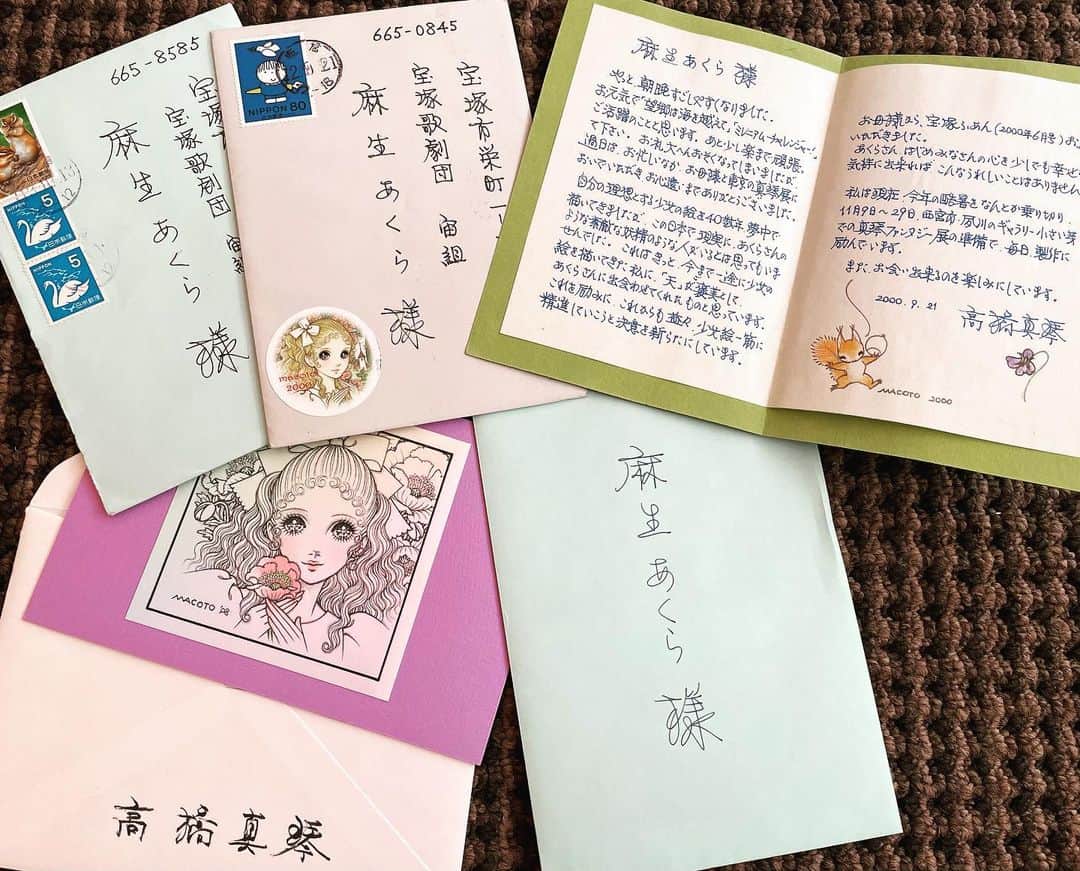 665-8585
宝塚
宝塚歌劇団
宙組
麻生あくら 様
5
NIPPON
日本郵便
5
日本郵便
665-0845
宝塚市栄町一
宝塚歌劇団 宙組
麻生あくら 様
NIPPON 80
macoto
2000
麻生あくら 様
やっと朝晩すごしやすくなりました。
お元気で「望郷は海を越えて」「ミレニアム・チャレンジャー」
ご活躍のことと思います。あと少し楽まで頑張って
下さい。お礼大へんおそくなってしまいましたが、
過日は、お忙しいなか、お母様と東京の真琴展に
おいでいただき お心遣いまでありがとうございました。
自分の理想とする少女の絵を40数年、夢中で
描いてきましたが、この日本で、現実に、あくらさんの
ような素敵な妖精のような人がいるとは思ってもいま
せんでした。これはきっと、今まで一途に少女の
絵を描いてきた私に、「天」が褒美として、
あくらさんに出会わせてくれたものと思っています。
これを励みに、これからも益々、少女絵一筋に
精進していこうと決意を新らたにしています。
お母様から、宝塚ふぁん(2000年6月号)お
いただきました。
あくらさん はじめみなさんの心を少しでも幸せな
気持に出来れば こんなうれしいことはありません。
私は現在、今年の酷暑をなんとか乗り切り、
11月9日〜29日、西宮市、夙川のギャラリー小さい芽
での真琴ファンタジー展の準備で、毎日、製作に
励んでいます。
また、お会い出来るのを楽しみにしています。
2000.9.21
高橋真琴
MACOTO 2000
MACOTO '98
麻生あくら 様
高橋真琴